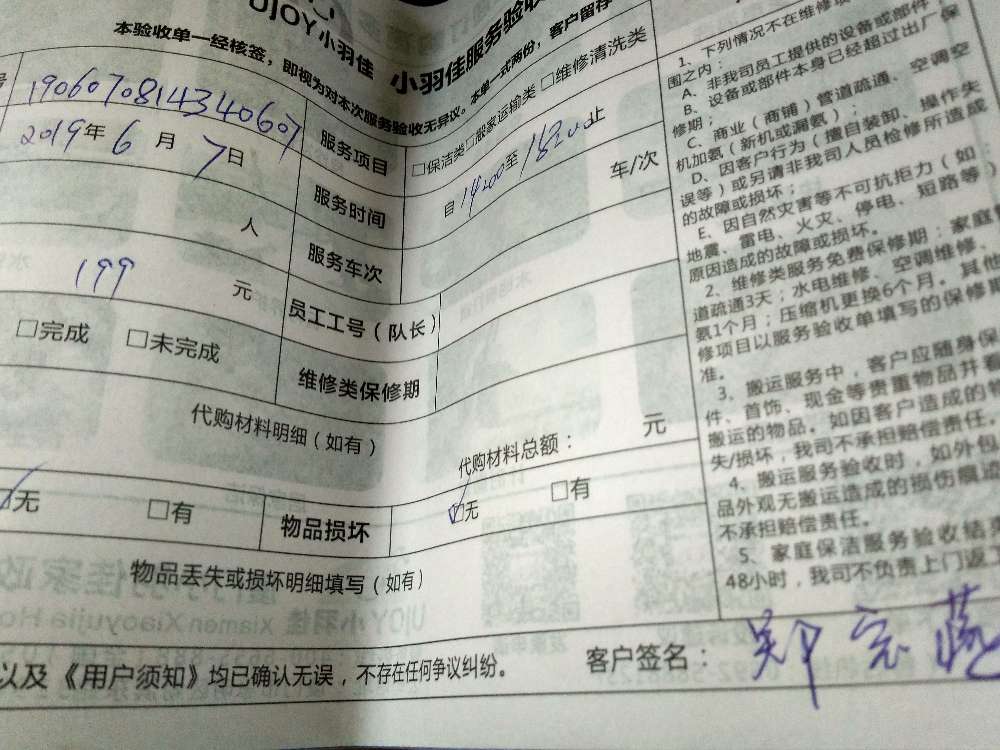 UJOY 小羽佳 小羽佳服务验收
本验收单一经核签，即视为对本次服务验收无异议。本单一式两份，客户留存
1906070814340607
服务项目 □保洁类□搬家运输类 □维修清洗类
2019年6月7日
服务时间 自 1400至1820止
人
服务车次 车/次
199 元
员工工号（队长）
□完成 □未完成
维修类保修期
代购材料明细（如有）
代购材料总额： 元
□无 □有
物品损坏 □无 □有
物品丢失或损坏明细填写（如有）
以及《用户须知》均已确认无误，不存在任何争议纠纷。
客户签名：
1、下列情况不在维修项
围之内：
A、非我司员工提供的设备或部件
B、设备或部件本身已经超过出厂保
修期；
C、商业（商铺）管道疏通、空调空
机加氨（新机或漏氨）；
D、因客户行为（擅自装卸、操作失
误等）或另请非我司人员检修所造成
的故障或损坏；
E、因自然灾害等不可抗拒力（如
地震、雷电、火灾、停电、短路等）
原因造成的故障或损坏。
2、维修类服务免费保修期：家庭
道疏通3天；水电维修、空调维修、
氨1个月；压缩机更换6个月。其他
修项目以服务验收单填写的保修期
准。
3、搬运服务中，客户应随身保
件、首饰、现金等贵重物品并看
搬运的物品。如因客户造成的物
失/损坏，我司不承担赔偿责任。
4、搬运服务验收时，如外包
品外观无搬运造成的损伤痕迹
不承担赔偿责任。
5、家庭保洁服务验收结束
48小时，我司不负责上门返工